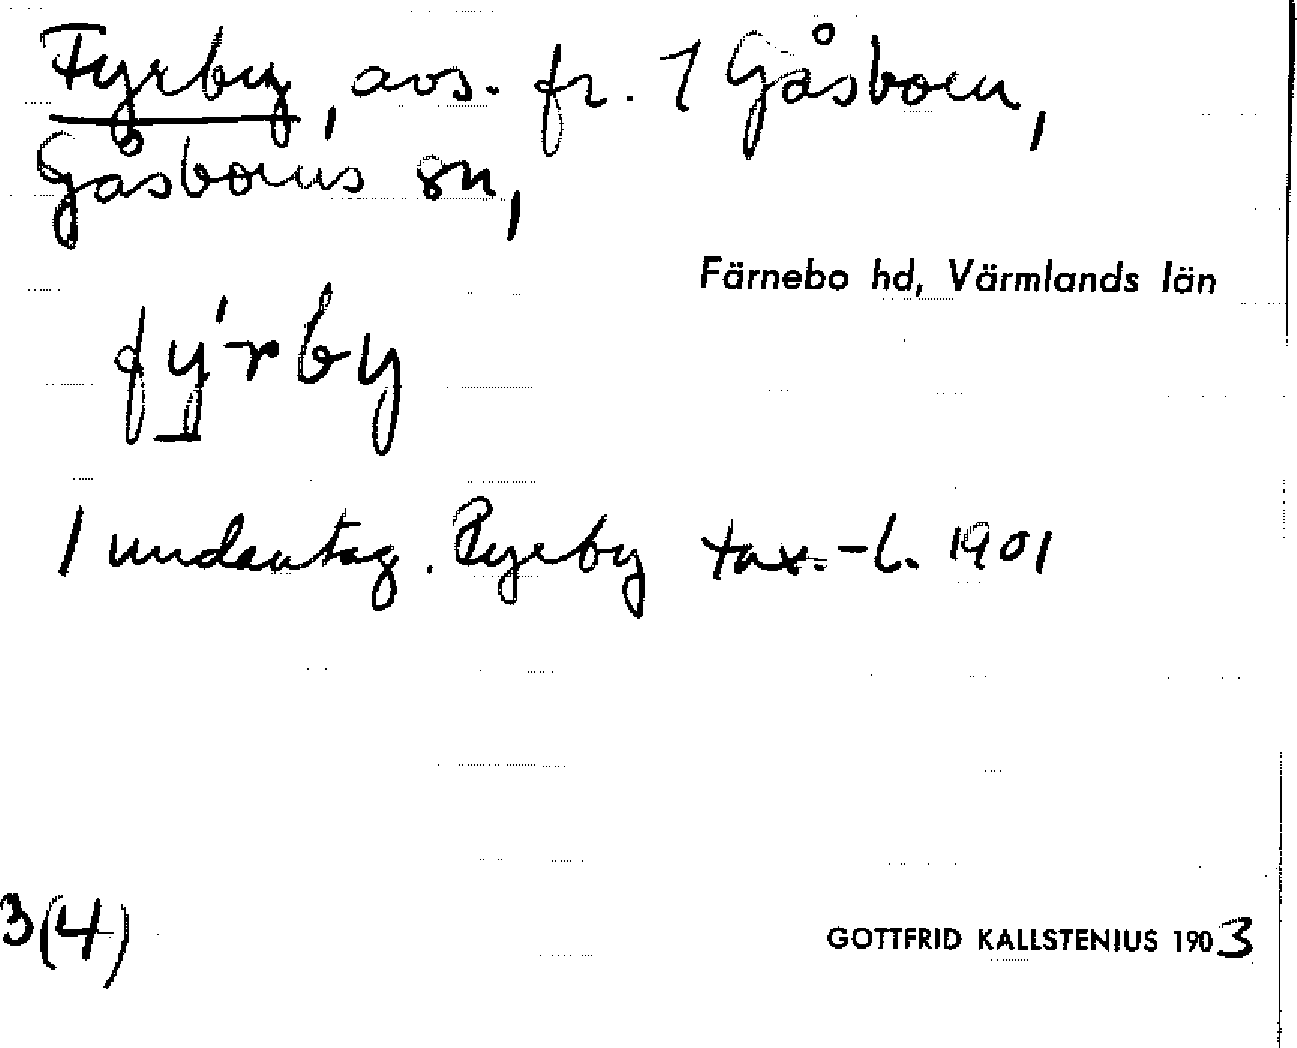 Fyrby, avs. fr. 1 Gåsborn,
Gåsborns sn,
Färnebo hd, Värmlands län
fý̱rby
1 undantag. Pyrby tax.-l. 1901
3(4)
GOTTFRID KALLSTENIUS 1903